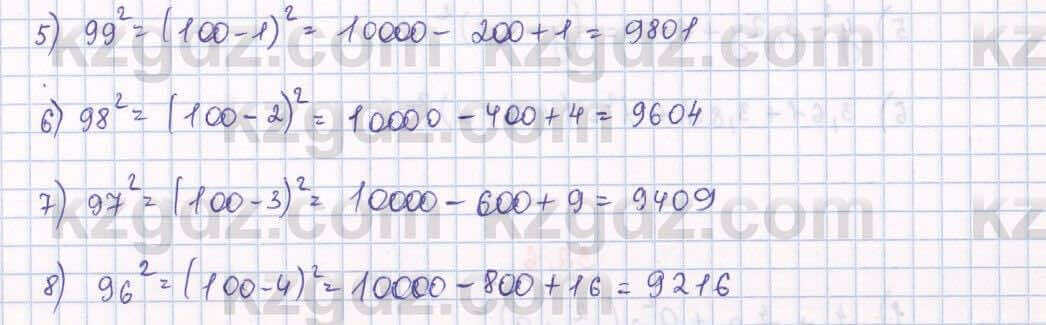 5) 99² = (100 - 1)² = 10000 - 200 + 1 = 9801
6) 98² = (100 - 2)² = 10000 - 400 + 4 = 9604
7) 97² = (100 - 3)² = 10000 - 600 + 9 = 9409
8) 96² = (100 - 4)² = 10000 - 800 + 16 = 9216